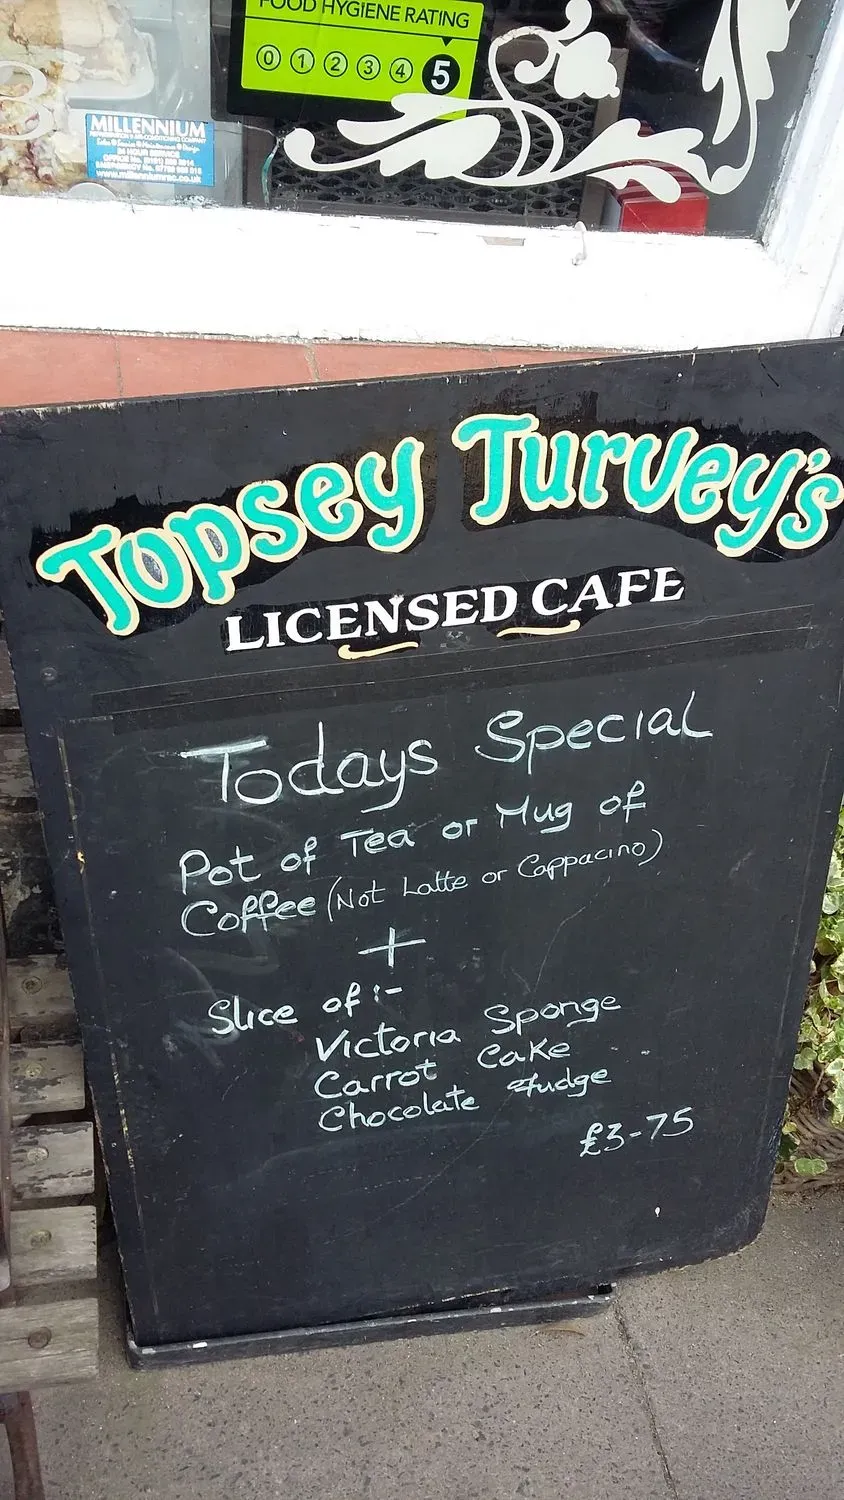 FOOD HYGIENE RATING
0 1 2 3 4 5
MILLENNIUM
24 HOUR SERVICE
Topsey Turvey's
LICENSED CAFE
Todays Special
Pot of Tea or Mug of
Coffee (Not Latte or Cappacino)
+
Slice of :-
Victoria Sponge
Carrot Cake
Chocolate fudge
£3-75